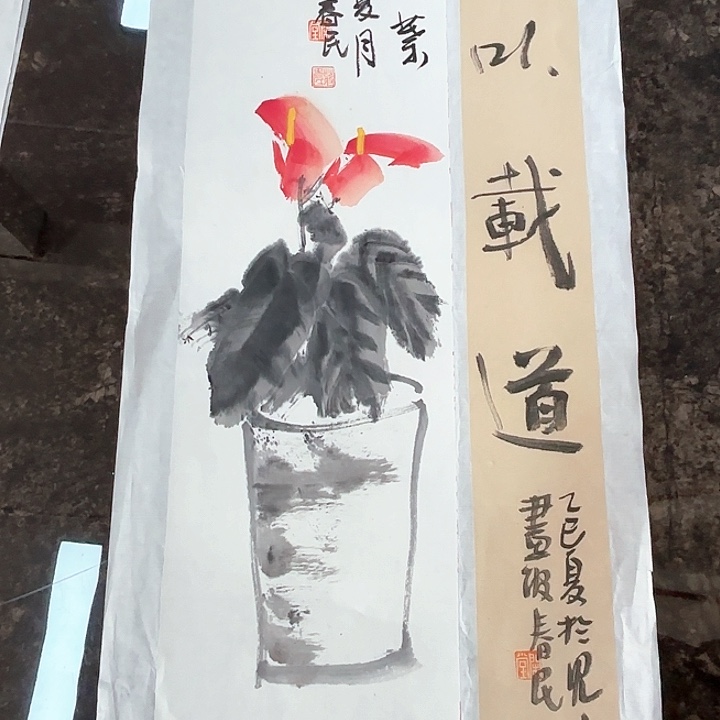 以載道
乙巳夏於
畫 春民
夏月
春民